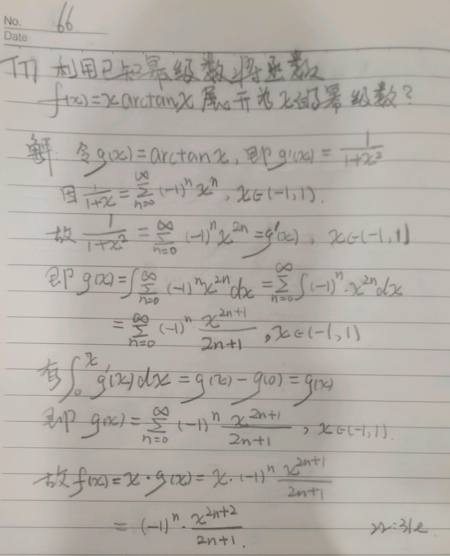 No. 66
Date
利用已知幂级数,将函数
f(x)=x arctanx 展开为x的幂级数?
解 令g(x)=arctanx,即g'(x)=1/(1+x²)
因 1/(1+x) = ∑_{n=0}^{∞} (-1)^n x^n, x∈(-1,1).
故 1/(1+x²) = ∑_{n=0}^{∞} (-1)^n x^{2n} = g'(x), x∈(-1,1)
即 g(x)=∫∑_{n=0}^{∞} (-1)^n x^{2n} dx = ∑_{n=0}^{∞} ∫(-1)^n·x^{2n} dx
= ∑_{n=0}^{∞} (-1)^n x^{2n+1}/(2n+1), x∈(-1,1)
有 ∫_0^x g'(x)dx = g(x)-g(0)=g(x)
即 g(x)= ∑_{n=0}^{∞} (-1)^n x^{2n+1}/(2n+1), x∈(-1,1).
故 f(x)=x·g(x)=x·(-1)^n x^{2n+1}/(2n+1)
= (-1)^n·x^{2n+2}/(2n+1).